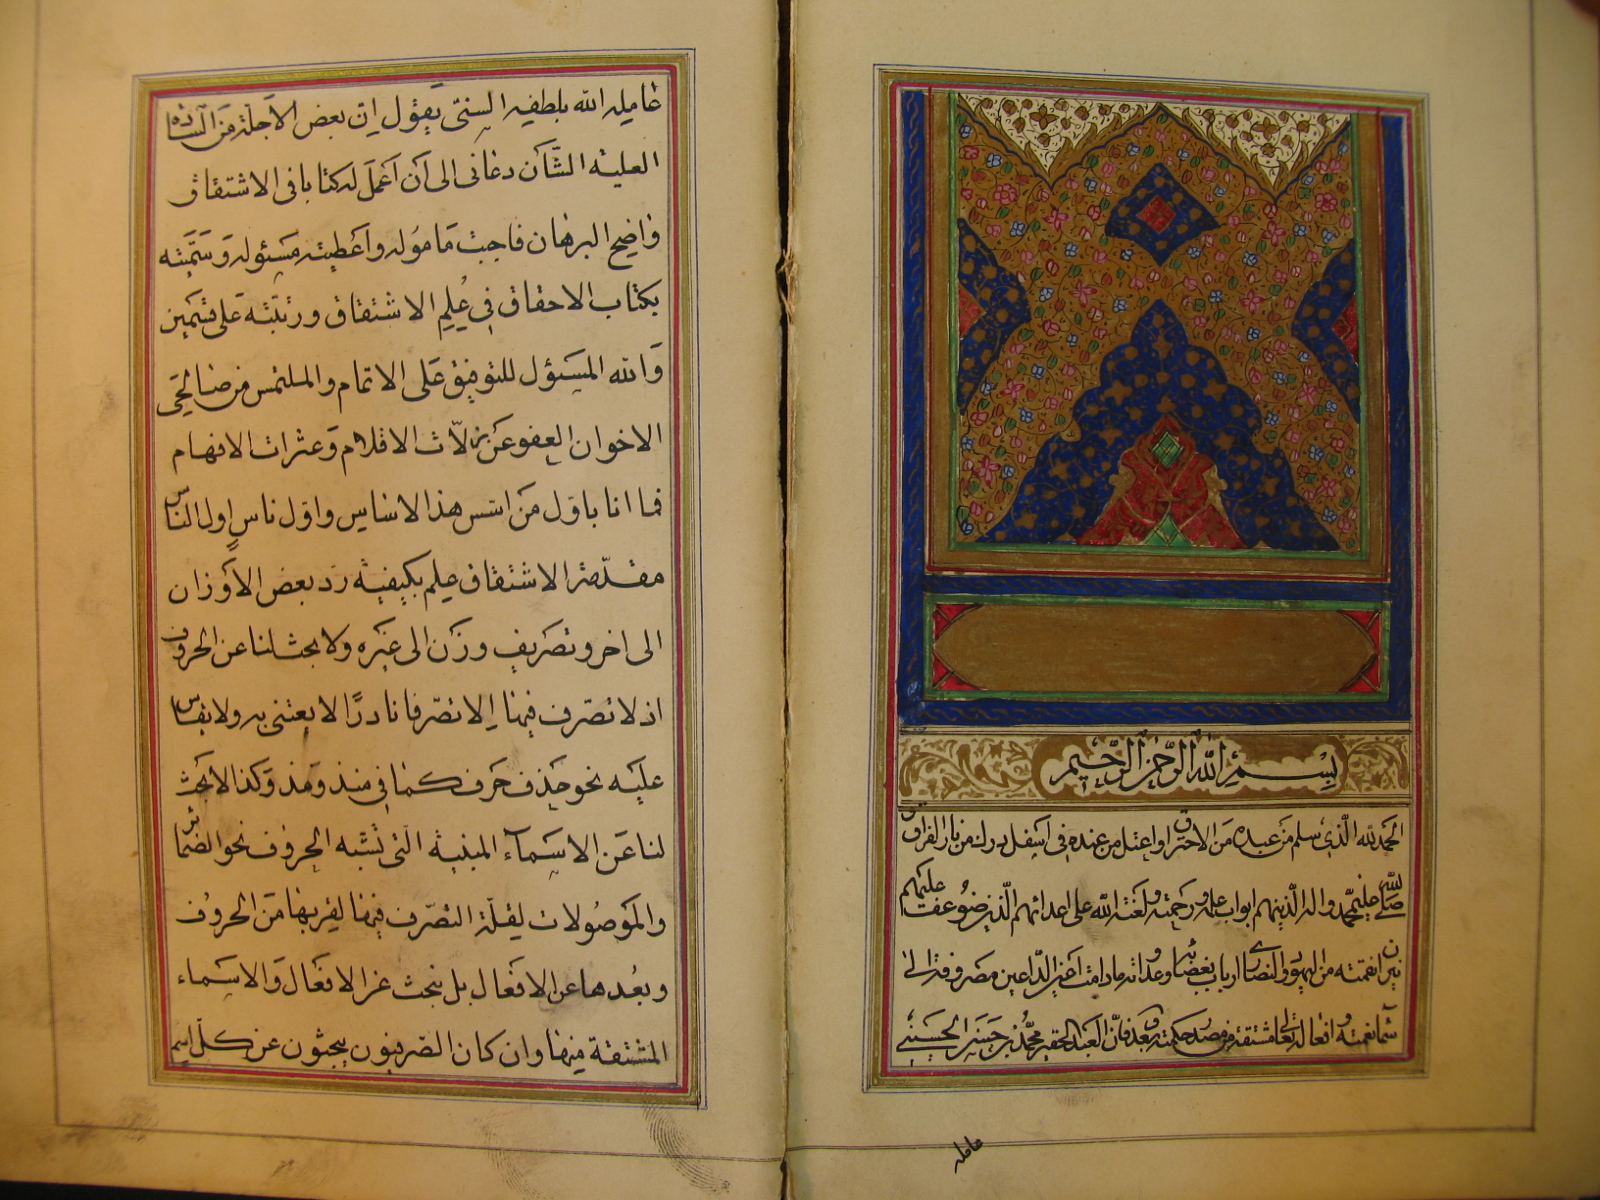 بسم الله الرحمن الرحيم
الحمد لله الذي سلم من عبده من الاحتراق او اعتل من عنده في اسفل درك من نار الفراق
صلى الله عليه محمد واله الذينهم ابواب علمه ورحمته ولعنة الله على اعدائهم الذين عفت عليهم
من اليهود والنصارى ارباب بغضائه وعداته مادامت اعين الداعين مصروفة الى
سماء نعمته وافعاله تعالى مشتقة من مصدر حكمته وبعد فان العبد الحقير محمد بن حسن الحسيني
عامله
عامله الله بلطفه السني يقول ان بعض الاجلة من السادة
العلية الشأن دعاني الى ان اعمل له كتابا في الاشتقاق
واضح البرهان فاجبت ماموله واعطيته مسئوله وسميته
بكتاب الاحقاق في علم الاشتقاق ورتبته على قسمين
والله المسئول للتوفيق على الاتمام والملتمس من صالحي
الاخوان العفو عن زلات الاقلام وعثرات الافهام
فما انا باول من اسس هذا الاساس واول ناس اول الناس
مقدمة الاشتقاق علم بكيفية رد بعض الاوزان
الى اخر وتصريف وزن الى غيره ولا بحث لنا عن الحروف
اذ لا تصرف فيها الا تصرفا نادرا لا يعتنى به ولا يقاس
عليه نحو حذف حرف كما في منذ ومذ وكذا لا بحث
لنا عن الاسماء المبنية التي تشبه الحروف نحو الضمائر
والموصولات لقلة التصرف فيها لقربها من الحروف
وبعدها عن الافعال بل نبحث عن الافعال والاسماء
المشتقة منها وان كان الصرفيون يبحثون عن كل اسم